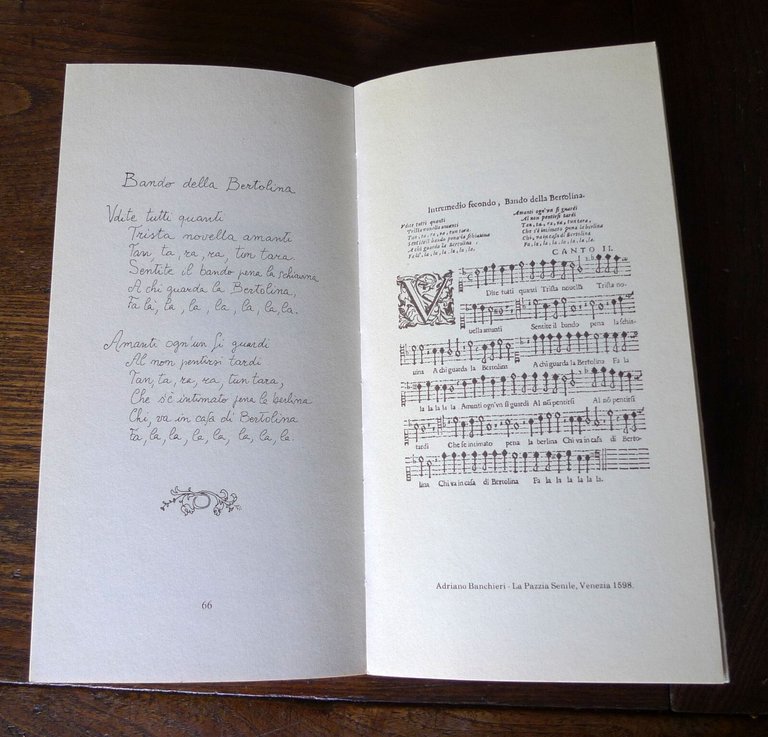 Bando della Bertolina
Vdite tutti quanti
Trista novella amanti
Tan, ta, ra, ra, tun tara.
Sentite il bando pena la schiauina
A chi guarda la Bertolina,
Fa là, la, la, la, la, la, la.
Amanti ogn'un si guardi
Al non pentirsi tardi
Tan, ta, ra, ra, tun tara,
Che s'è intimato pena la berlina
Chi, va in casa di Bertolina
Fa la, la, la, la, la, la, la.
66
Intermedio secondo, Bando della Bertolina.
Vdite tutti quanti
Trista nouella amanti
Tan, ta, ra, ra, tun tara,
Sentite il bando pena la schiauina
A chi guarda la Bertolina
Fa là, la, la, la, la, la, la.
Amanti ogn'vn si guardi
Al non pentirsi tardi
Tan, ta, ra, ra, tun tara,
Che s'è intimato pena la berlina
Chi, va in casa di Bertolina
Fa la, la, la, la, la, la, la.
CANTO II.
V
Dite tutti quanti Trista nouella Trista no-
uella amanti Sentite il bando pena la schia-
uina A chi guarda la Bertolina A chi guarda la Bertolina Fa la
la la la la la Amanti ogn'vn si guardi Al nō pentirsi Al nō pentirsi
tardi Che s'e intimato pena la berlina Chi va in casa di Berto-
lina Chi va in casa di Bertolina Fa la la la la la la.
Adriano Banchieri - La Pazzia Senile, Venezia 1598.